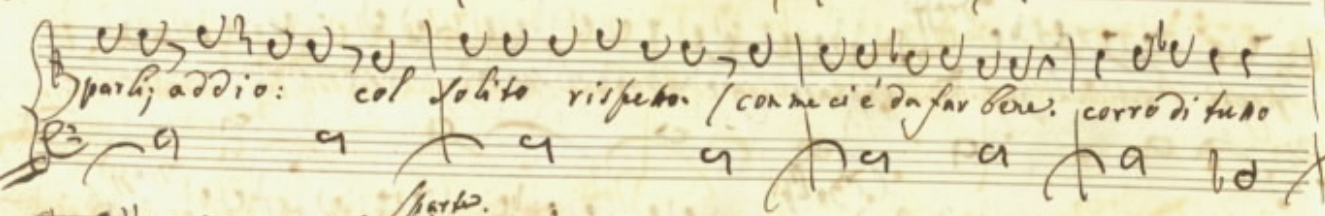 parli; addio: col solito rispetto. (con me ci è da far bene. corro di tutto
parte.